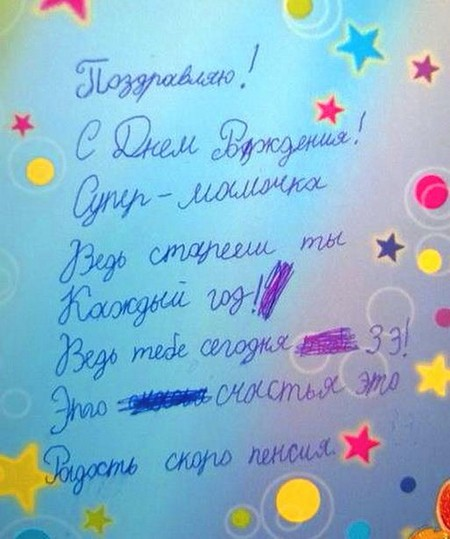 Поздравляю!
С Днем Рождения!
Супер-мамочка
Ведь стареешь ты
Каждый год!
Ведь тебе сегодня 33!
Это счастья это
Радость скоро пенсия.